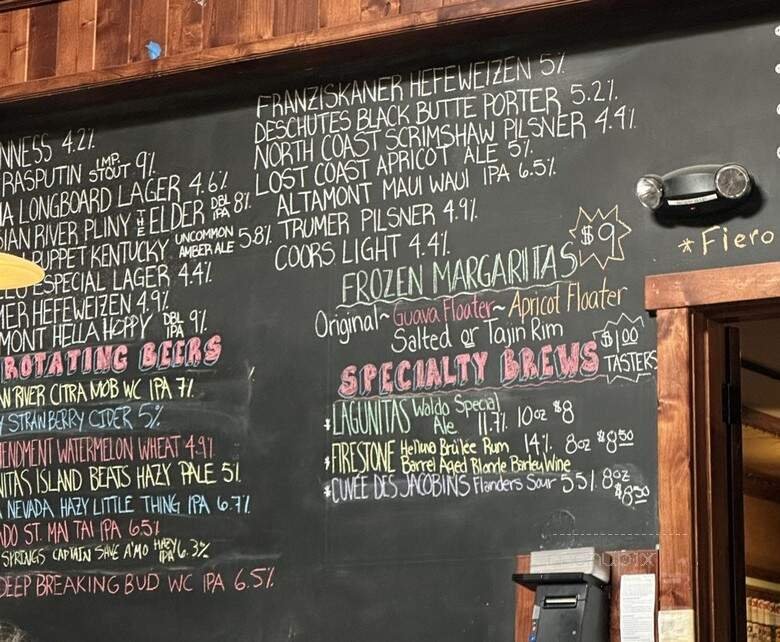 NNESS 4.2%
RASPUTIN IMP. STOUT 9%
A LONGBOARD LAGER 4.6%
IAN RIVER PLINY THE ELDER DBL IPA 8%
PUPPET KENTUCKY UNCOMMON AMBER ALE 5.8%
ESPECIAL LAGER 4.4%
MER HEFEWEIZEN 4.9%
MONT HELLA HOPPY DBL IPA 9%
ROTATING BEERS
RIVER CITRA MOB WC IPA 7%
STRAWBERRY CIDER 5%
ENDMENT WATERMELON WHEAT 4.9%
ITAS ISLAND BEATS HAZY PALE 5%
NEVADA HAZY LITTLE THING IPA 6.7%
ADO ST. MAI TAI IPA 6.5%
SPRINGS CAPTAIN SAVE A'MO HAZY IPA 6.3%
DEEP BREAKING BUD WC IPA 6.5%
FRANZISKANER HEFEWEIZEN 5%
DESCHUTES BLACK BUTTE PORTER 5.2%
NORTH COAST SCRIMSHAW PILSNER 4.4%
LOST COAST APRICOT ALE 5%
ALTAMONT MAUI WAUI IPA 6.5%
TRUMER PILSNER 4.9%
COORS LIGHT 4.4%
FROZEN MARGARITAS $9
Original~ Guava Floater~ Apricot Floater
Salted or Tajin Rim
SPECIALTY BREWS $1.00 TASTERS
*LAGUNITAS Waldo Special Ale 11.7% 10oz $8
*FIRESTONE Helluva Brûlée Rum Barrel Aged Blonde Barley Wine 14% 8oz $8.50
*CUVÉE DES JACOBINS Flanders Sour 5.5% 8oz $8.50
*Fiero